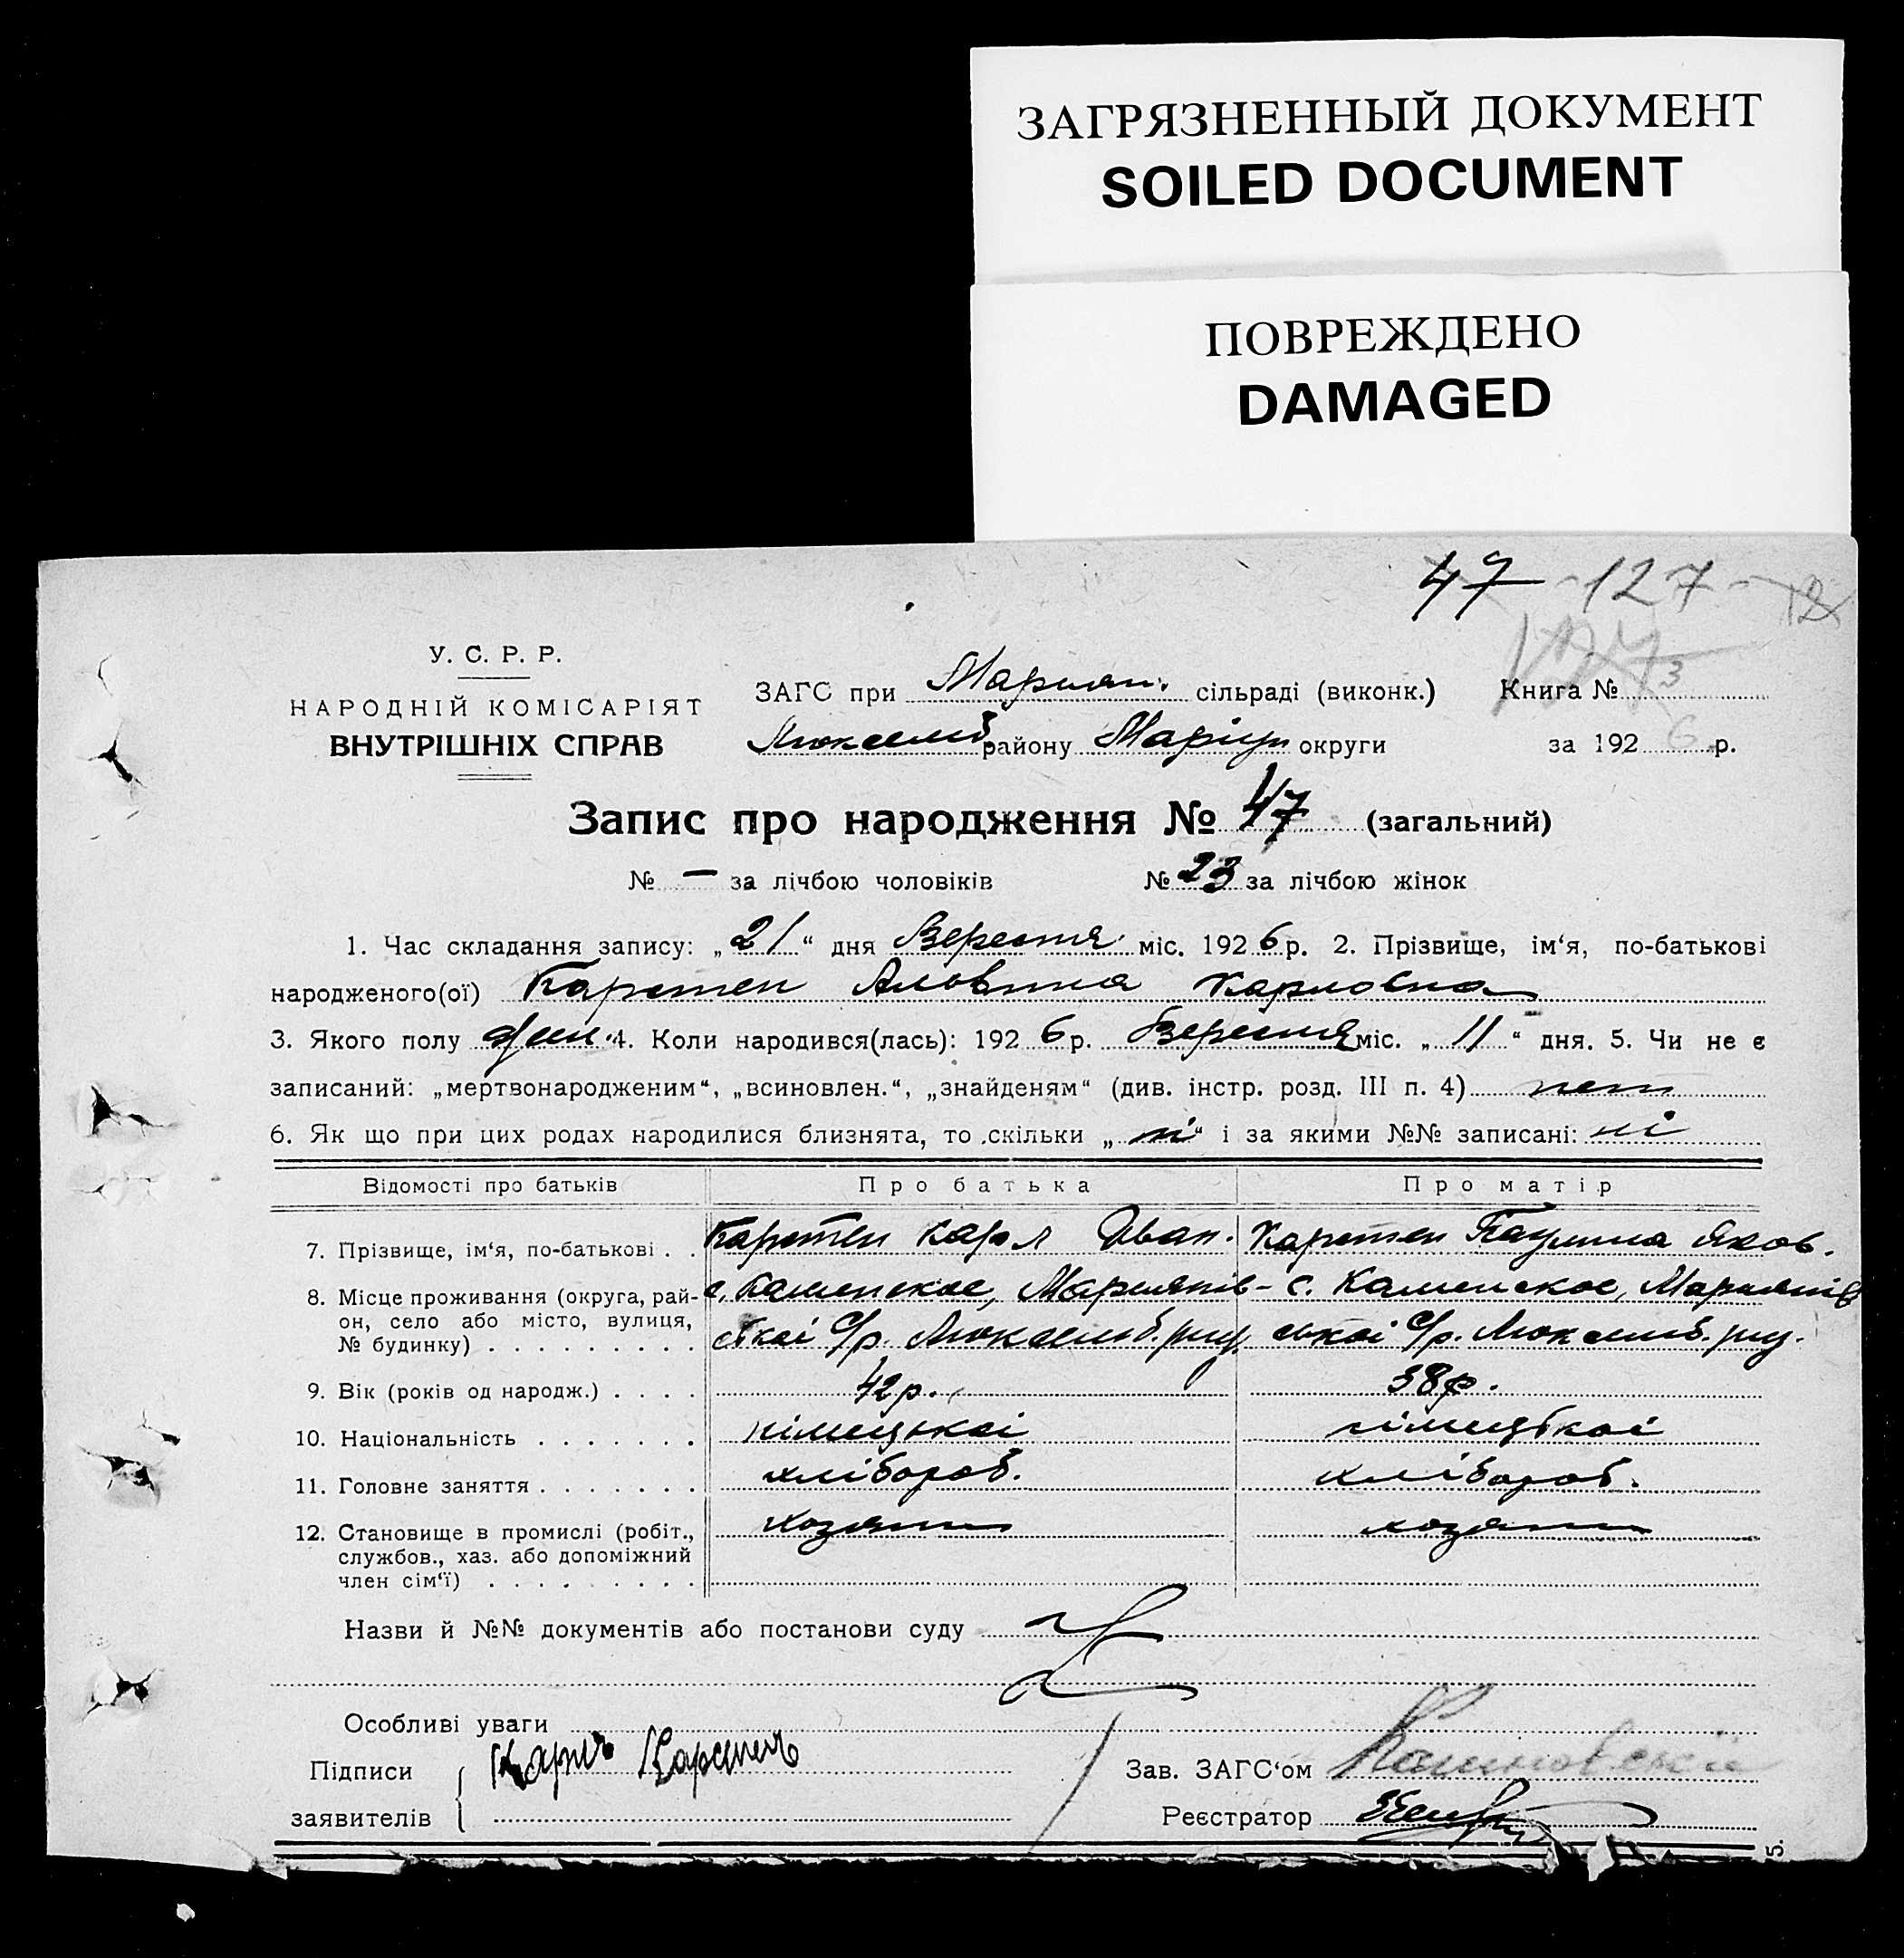 ЗАГРЯЗНЕННЫЙ ДОКУМЕНТ
SOILED DOCUMENT
ПОВРЕЖДЕНО
DAMAGED
47 - 127 -
У. С. Р. Р.
НАРОДНІЙ КОМІСАРІЯТ
ВНУТРІШНІХ СПРАВ
ЗАГС при Мариян. сільраді (виконк.) Книга № 3
Люксемб району Маріуп округи за 1926 р.
Запис про народження № 47 (загальний)
№ — за лічбою чоловіків № 23 за лічбою жінок
1. Час складання запису: „21“ дня Вересня міс. 1926 р. 2. Прізвище, ім‘я, по-батькові
народженого(ої) Карстен Аловтна Карловна
3. Якого полу жін. 4. Коли народився(лась): 1926 р. Вересня міс. „11“ дня. 5. Чи не є
записаний: „мертвонародженим“, „всиновлен.“, „знайденям“ (див. інстр. розд. III п. 4) нет
6. Як що при цих родах народилися близнята, то скільки „ні“ і за якими №№ записані: ні
Відомості про батьків Про батька Про матір
7. Прізвище, ім‘я, по-батькові . . Карстен Карл Иван. Карстен Паулина Яков.
8. Місце проживання (округа, рай- с. Каменское, Мариянів- с. Каменское, Мариянів
он, село або місто, вулиця, ської с/р. Люксемб. рну. ської с/р. Люксемб. рну.
№ будинку) . . . . . . . . .
9. Вік (років од народж.) . . . . 42 р. 38 р.
10. Національність . . . . . . . німецької німецької
11. Головне заняття . . . . . . . хлібороб. хлібороб.
12. Становище в промислі (робіт., хозяин хозяин
службов., хаз. або допоміжний
член сім‘ї) . . . . . . . . .
Назви й №№ документів або постанови суду
Особливі уваги
Підписи Карл Карстен Зав. ЗАГС‘ом
заявителів Реєстратор
5.